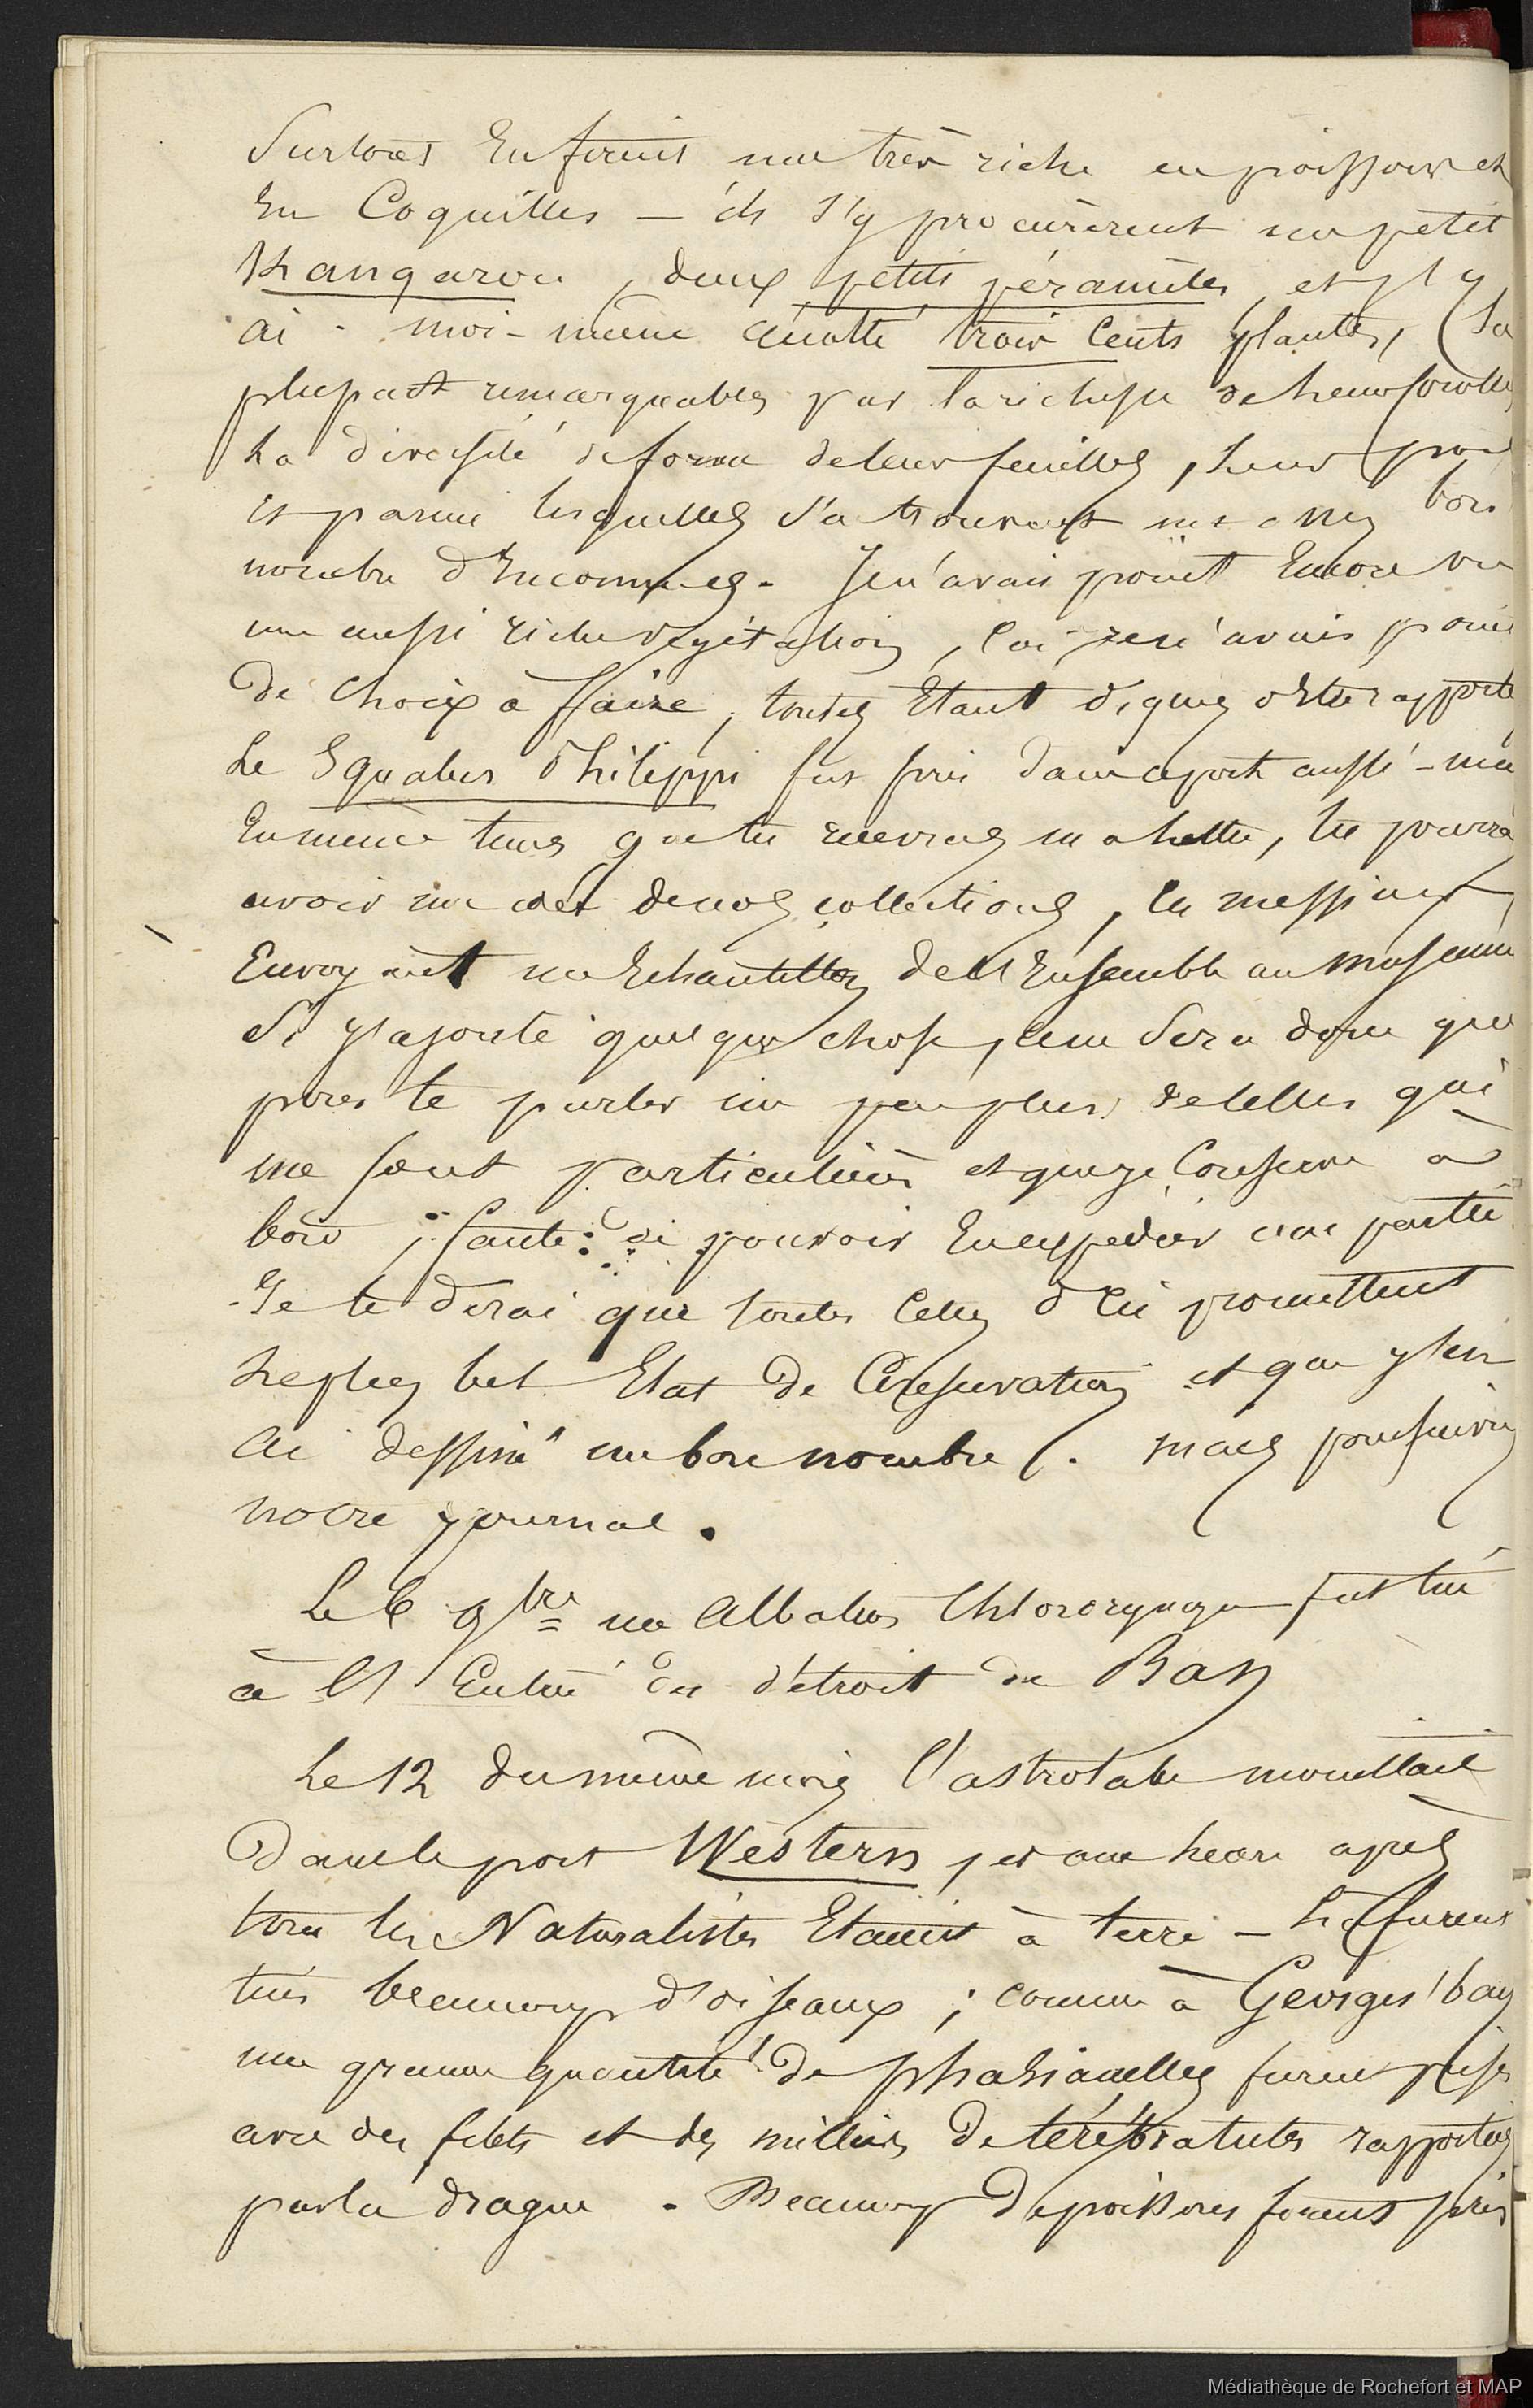 Surtout en firent une très riche en poissons et
En Coquilles — ils s'y procurèrent un petit
Kanguroo, deux petits péramèles, et j'y
ai moi-même trois Cents plantes, (la
plupart remarquables par la richesse de leur
La diversité de forme de leurs feuilles, leur
et parmi lesquelles s'en trouvent bon
nombre d'Inconnues. Je n'avais point Encore vu
une aussi riche végétation, Car je n'avais point
De Choix à ffaire, toutes Etant dignes d'être rapporté
Le Squalus Philippi fut pris dans ce port aussi
En même tems que tu recevras ma lettre, tu pourras
avoir une idée de nos collections, ces messieurs
Envoyant un Echantillon de l'Ensemble au museum
Si j'ajoute quelque chose, ce ne sera donc que
pour te parler un peu plus de celles qui
me sont particulières et que je Conserve à
bord, faute de pouvoir En expédier une partie
Je te dirai que toutes Celles d'Ici promettent
Le plus bel Etat de Conservation et que j'en
ai dessiné un bon nombre. mais poursuivons
notre journal.
Le 6 9bre un Albatros Chlororynque fut tué
à l'Entrée du détroit de Bass
Le 12 du même mois l'astrolabe mouillait
Dans le port Western, et une heure après
tous les Naturalistes Etaient à terre — Là furent
tués beaucoup d'oiseaux ; comme à Georges' bay
une grande quantité de phasianelles furent prises
avec des filets et des milliers de térébratules rapportées
par la drague. Beaucoup de poissons furent pris
Médiathèque de Rochefort et MAP